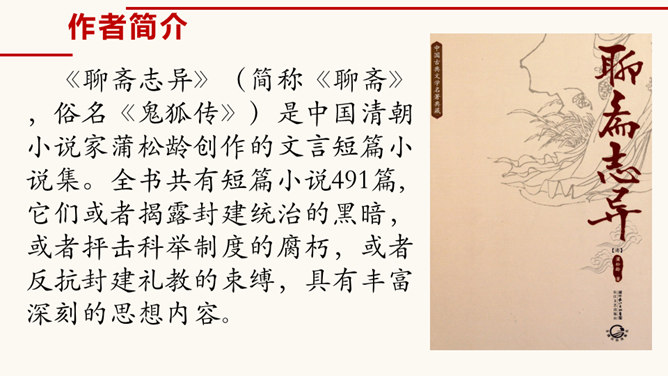 作者简介
《聊斋志异》（简称《聊斋》
，俗名《鬼狐传》）是中国清朝
小说家蒲松龄创作的文言短篇小
说集。全书共有短篇小说491篇，
它们或者揭露封建统治的黑暗，
或者抨击科举制度的腐朽，或者
反抗封建礼教的束缚，具有丰富
深刻的思想内容。
中国古典文学名著典藏
聊斋志异